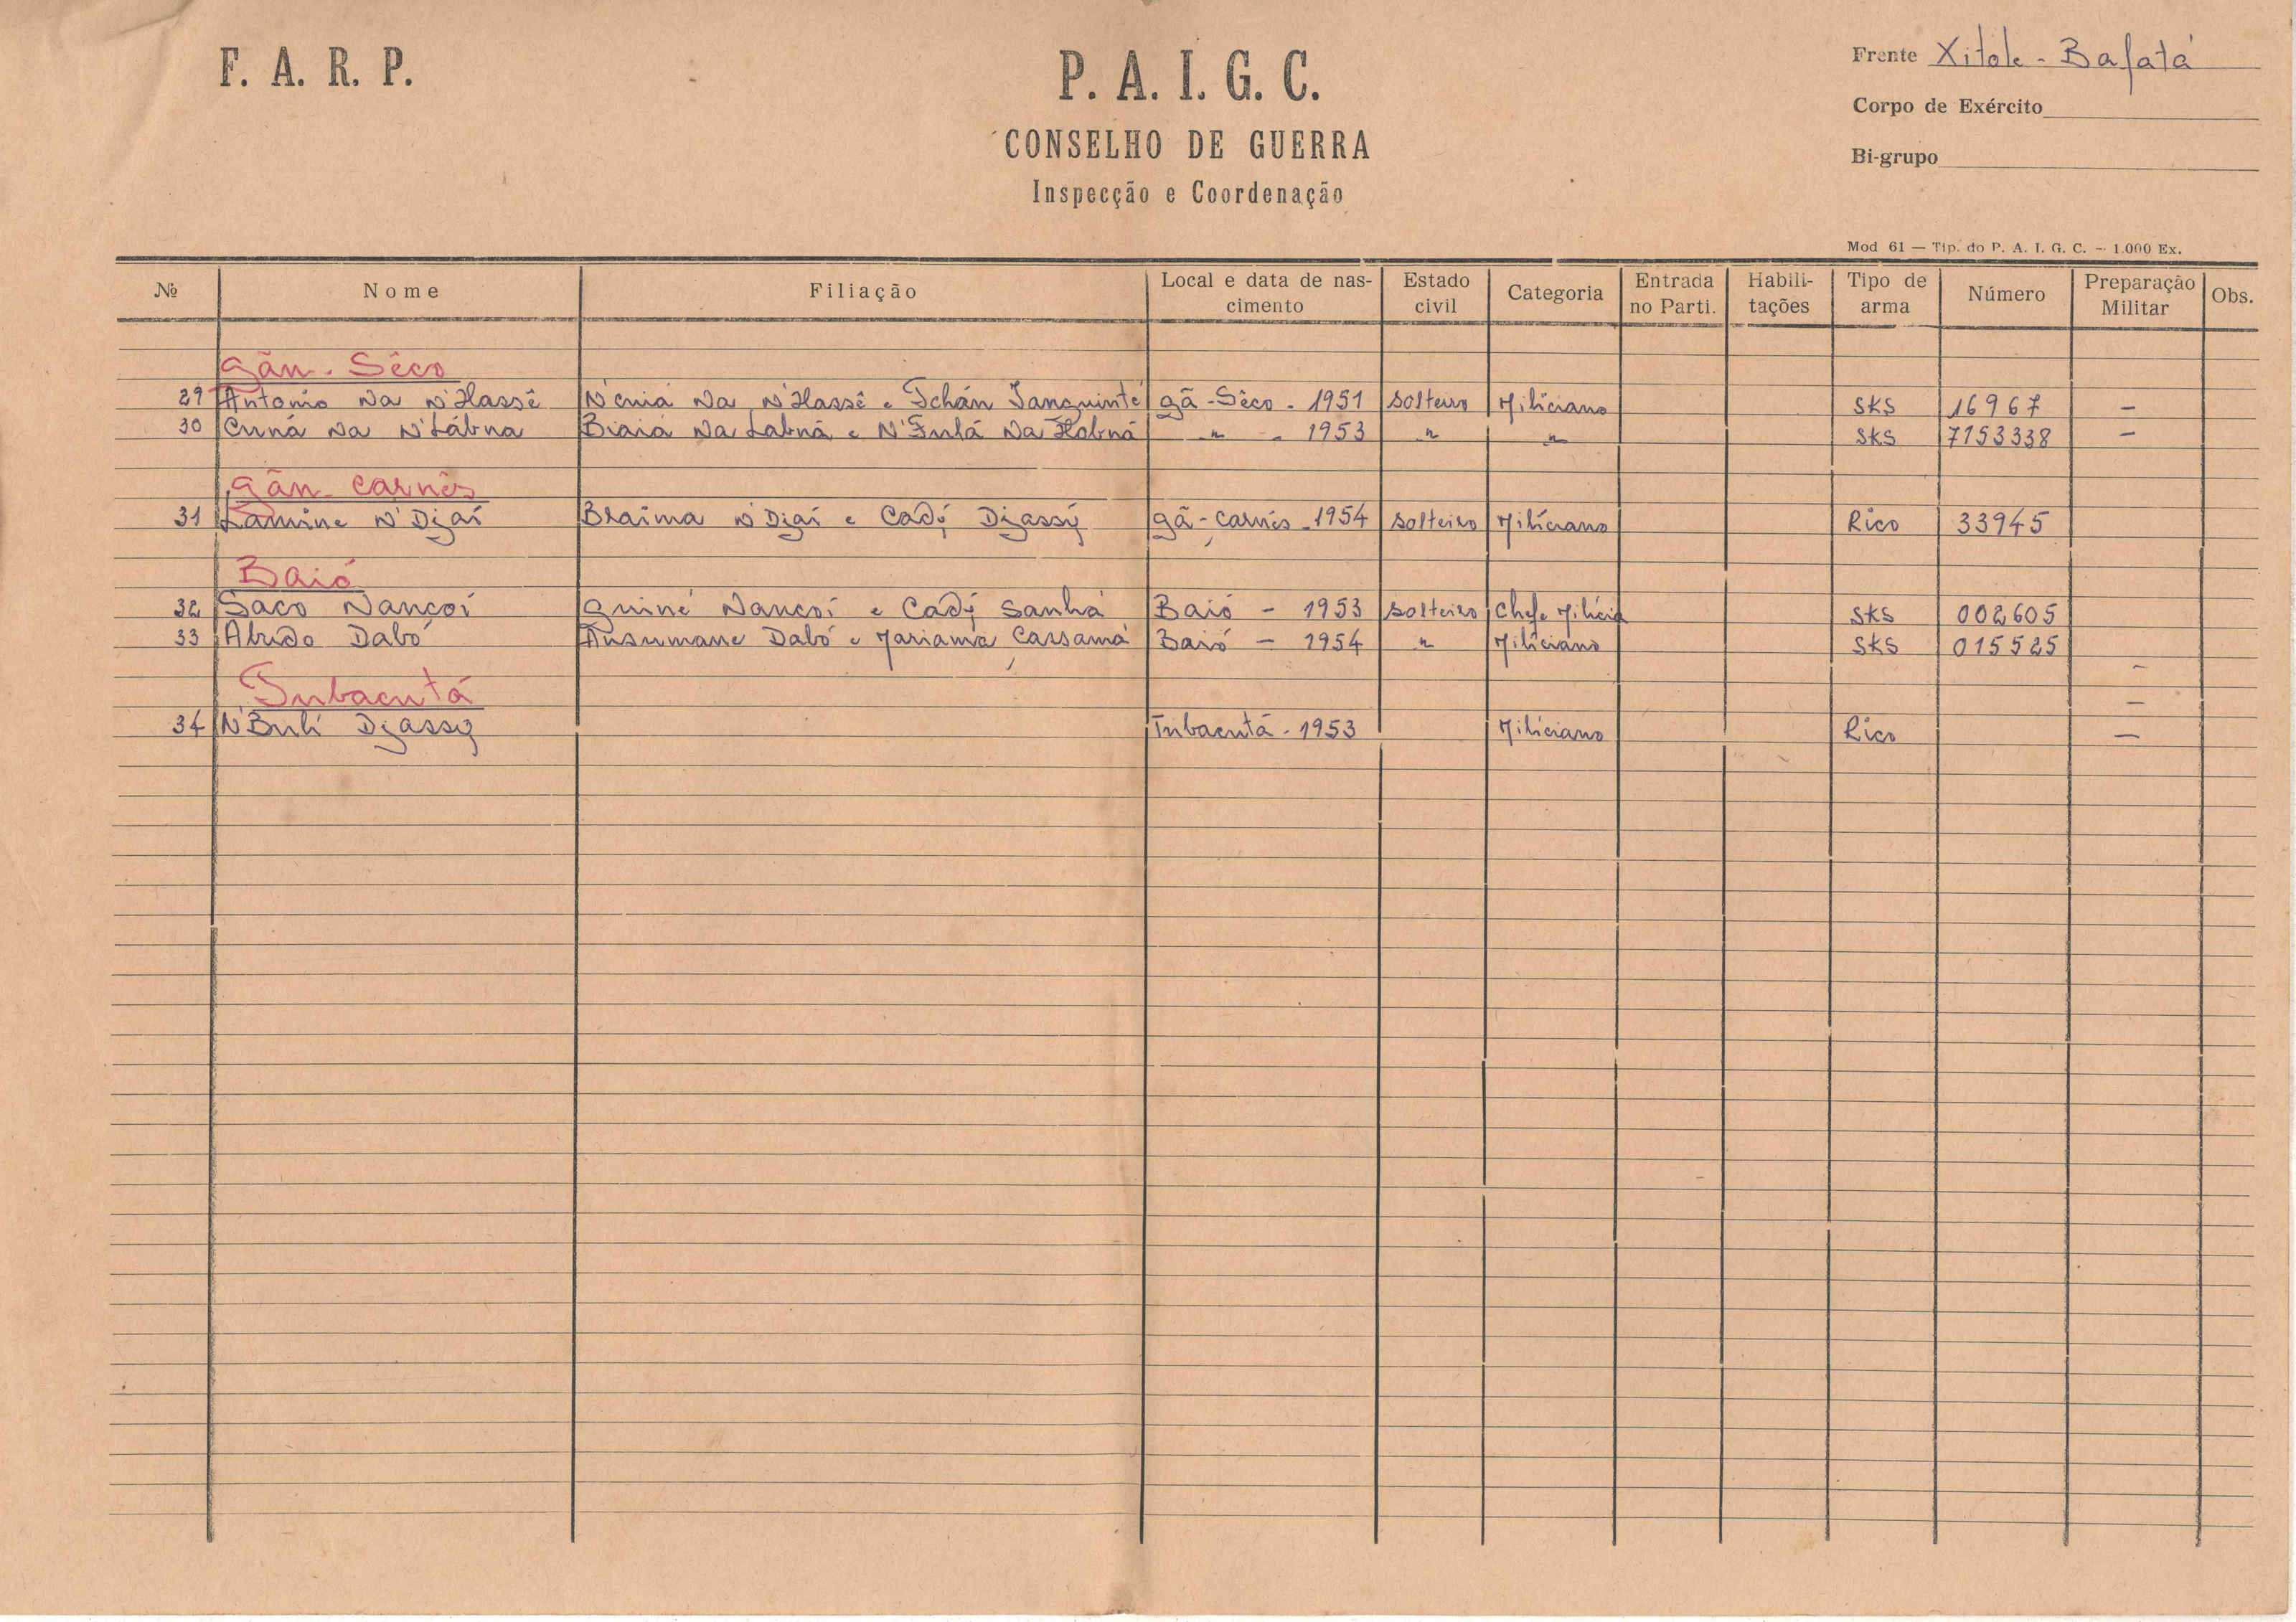 F. A. R. P.
P. A. I. G. C.
CONSELHO DE GUERRA
Inspecção e Coordenação
Frente Xitole - Bafatá
Corpo de Exército
Bi-grupo
Mod 61 — Tip. do P. A. I. G. C. — 1.000 Ex.
№ Nome Filiação Local e data de nas- Estado Categoria Entrada Habili- Tipo de Número Preparação Obs.
cimento civil no Parti. tações arma Militar
Gãn - Sêco
29 Antonio Na N'Hassê N'cniá Na N'Hassê e Tchán Sanquinté Gã - Sêco - 1951 Solteiro Miliciano SKS 16967 —
30 Cuná Na N'Lábna Biaiá Na Labná e N'Fulá Na Hobná " - 1953 " " SKS 7153338 —
Gãn - Carnês
31 Lamine N'Djaí Braima N'Djaí e Cadí Djassí Gã - Carnês - 1954 Solteiro Miliciano Rico 33945
Baió
32 Saco Nancoí Guiné Nancoí e Cadí Sanhá Baió - 1953 Solteiro Chefe Milícia SKS 002605
33 Abudo Dabó Ansumane Dabó e Mariama Cassamá Baió - 1954 " Miliciano SKS 015525
—
Tubacutá
—
34 N'Buli Djassy Tubacutá - 1953 Miliciano Rico —